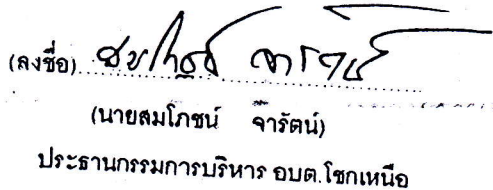 (ลงชื่อ) สมโภชน์ จารัตน์
(นายสมโภชน์ จารัตน์)
ประธานกรรมการบริหาร อบต.โชกเหนือ